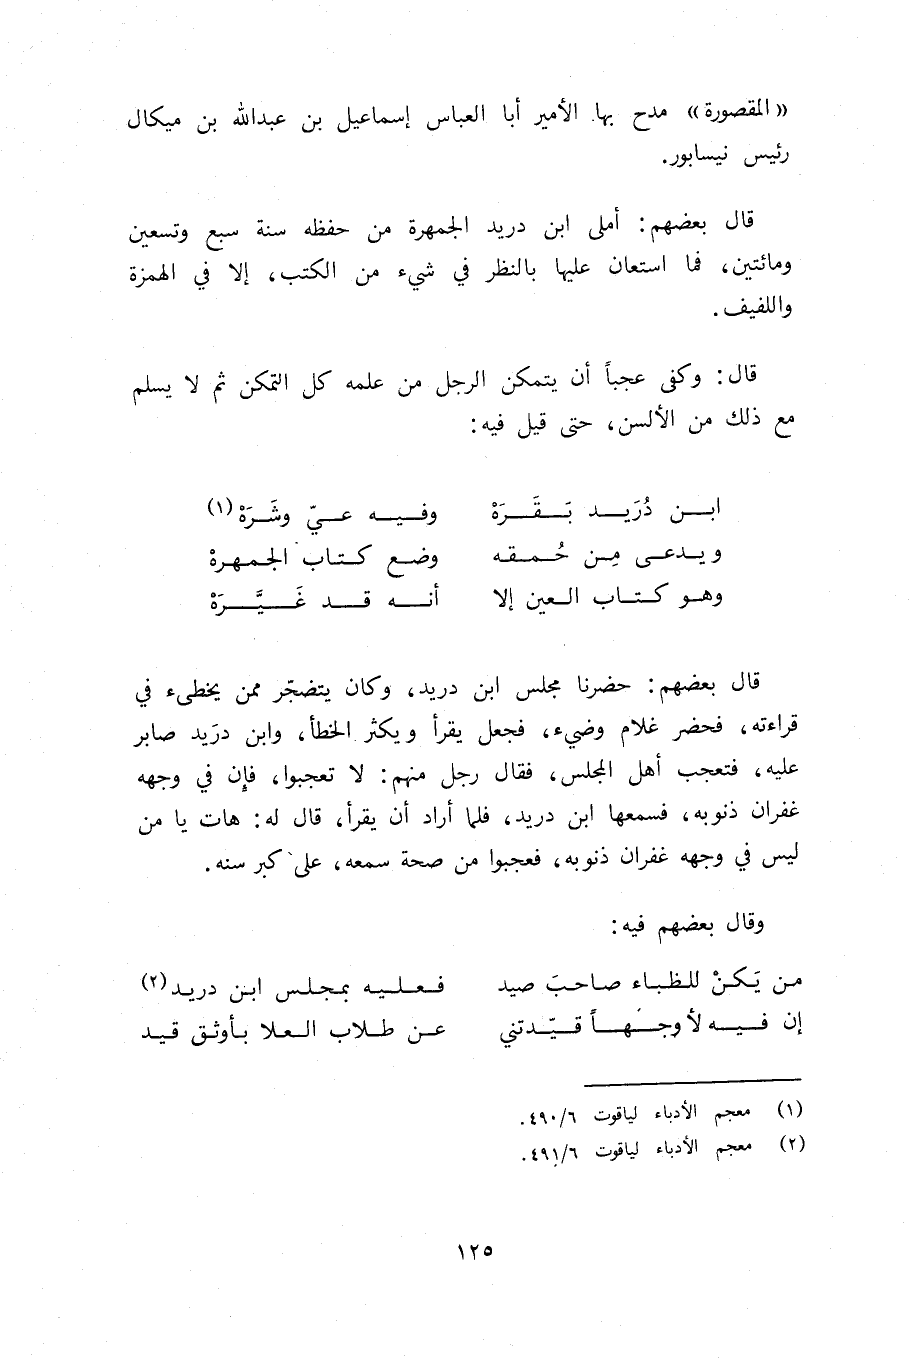 «المقصورة» مدح بها الأمير أبا العباس إسماعيل بن عبدالله بن ميكال
رئيس نيسابور.
قال بعضهم: أملى ابن دريد الجمهرة من حفظه سنة سبع وتسعين
ومائتين، فما استعان عليها بالنظر في شيء من الكتب، إلا في الهمزة
واللفيف.
قال: وكفى عجباً أن يتمكن الرجل من علمه كل التمكن ثم لا يسلم
مع ذلك من الألسن، حتى قيل فيه:
ابن دُرَيد بَقَرَهْ وفيه عيّ وشَرَهْ(١)
ويدعى مِن حُمقه وضع كتاب الجمهرهْ
وهو كتاب العين إلا أنه قد غَيَّرَهْ
قال بعضهم: حضرنا مجلس ابن دريد، وكان يتضجّر ممن يخطىء في
قراءته، فحضر غلام وضيء، فجعل يقرأ ويكثر الخطأ، وابن درَيد صابر
عليه، فتعجب أهل المجلس، فقال رجل منهم: لا تعجبوا، فإن في وجهه
غفران ذنوبه، فسمعها ابن دريد، فلما أراد أن يقرأ، قال له: هات يا من
ليس في وجهه غفران ذنوبه، فعجبوا من صحة سمعه، على كبر سنه.
وقال بعضهم فيه:
من يَكنْ للظباء صاحبَ صيد فعليه بمجلس ابن دريد(٢)
إن فيه لأوجُهاً قيّدتني عن طلاب العلا بأوثق قيد
(١) معجم الأدباء لياقوت ٤٩٠/٦.
(٢) معجم الأدباء لياقوت ٤٩١/٦.
١٢٥